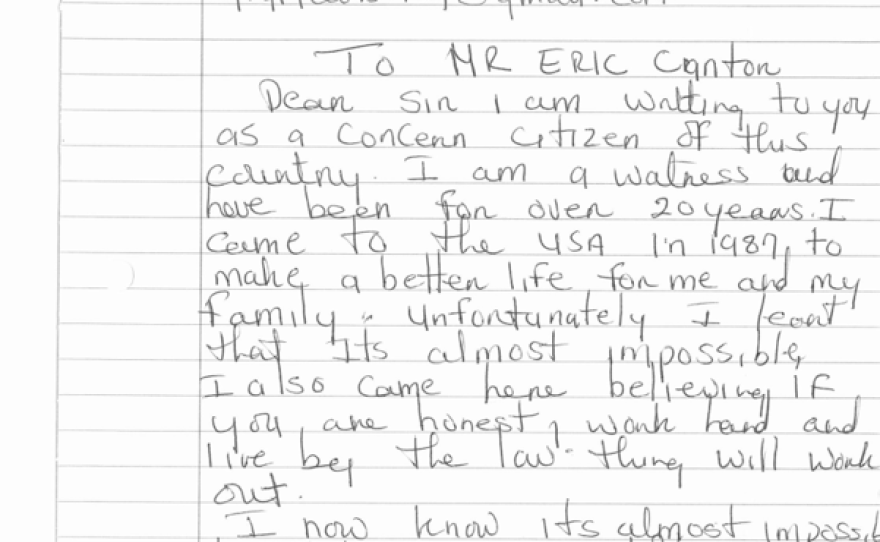 To MR ERIC Canton
Dear Sir I am writting to you
as a concern citizen of this
country. I am a waitress and
have been for over 20 years. I
came to the USA in 1987, to
make a better life for me and my
family. unfortunately I
that its almost impossible,
I also came here believing if
you are honest, work hard and
live by the law. thing will work
out.
I now know its almost